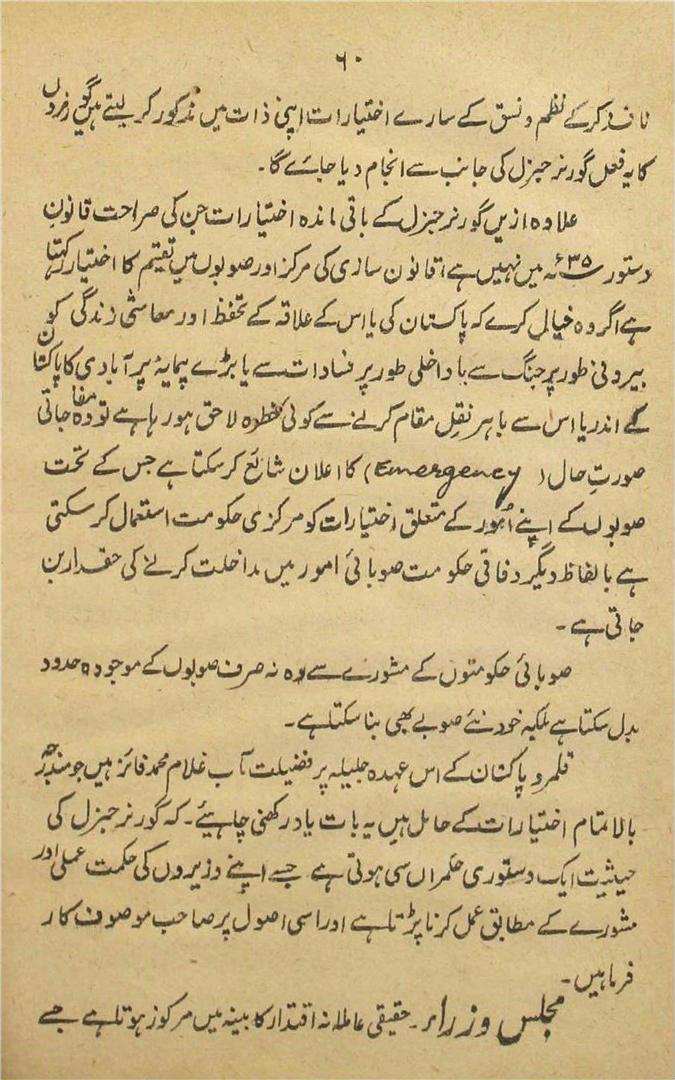 ۶۰
نافذ کر کے نظم و نسق کے سارے اختیارات اپنی ذات میں مذکور کر لیتے ہیں گورنروں
کا یہ فعل گورنر جنرل کی جانب سے انجام دیا جائے گا۔
علاوہ ازیں گورنر جنرل کے باقی ماندہ اختیارات جن کی صراحت قانون
دستور ۳۵ء میں نہیں ہے قانون سازی کی مرکز اور صوبوں میں تقیتم کا اختیار رکھتا
ہے اگر وہ خیال کرے کہ پاکستان کی یا اس کے علاقہ کے تحفظ اور معاشی زندگی کو
بیرونی طور پر جنگ سے یا داخلی طور پر فسادات سے یا بڑے پیمایۂ پر آبادی کا پاکستان
کے اندر یا اس سے باہر نقلِ مقام کرنے سے کوئی خطرہ لاحق ہو رہا ہے تو وہ مفاجاتی
صورتِ حال (Emergency) کا اعلان شائع کر سکتا ہے جس کے تحت
صوبوں کے اپنے اُمور کے متعلق اختیارات کو مرکزی حکومت استعمال کر سکتی
ہے بالفاظ دیگر وفاقی حکومت صوبائی امور میں مداخلت کرنے کی حقدار بن
جاتی ہے۔
صوبائی حکومتوں کے مشورے سے وہ نہ صرف صوبوں کے موجودہ حدود
بدل سکتا ہے بلکہ خود نئے صوبے بھی بنا سکتا ہے۔
قلمرو پاکستان کے اس عہدہ جلیلہ پر فضیلت مآب غلام محمد فائز ہیں جو مندرجہ
بالا تمام اختیارات کے حامل ہیں یہ بات یاد رکھنی چاہیئے۔ کہ گورنر جنرل کی
حیثیت ایک دستوری حکمراں سی ہوتی ہے جسے اپنے وزیروں کی حکمت عملی اور
مشورے کے مطابق عمل کرنا پڑتا ہے اور اسی اصول پر صاحب موصوف کار
فرما ہیں۔
مجلس وزراء۔ حقیقی عاملانہ اقتدار کابینہ میں مرکوز ہوتا ہے جسے